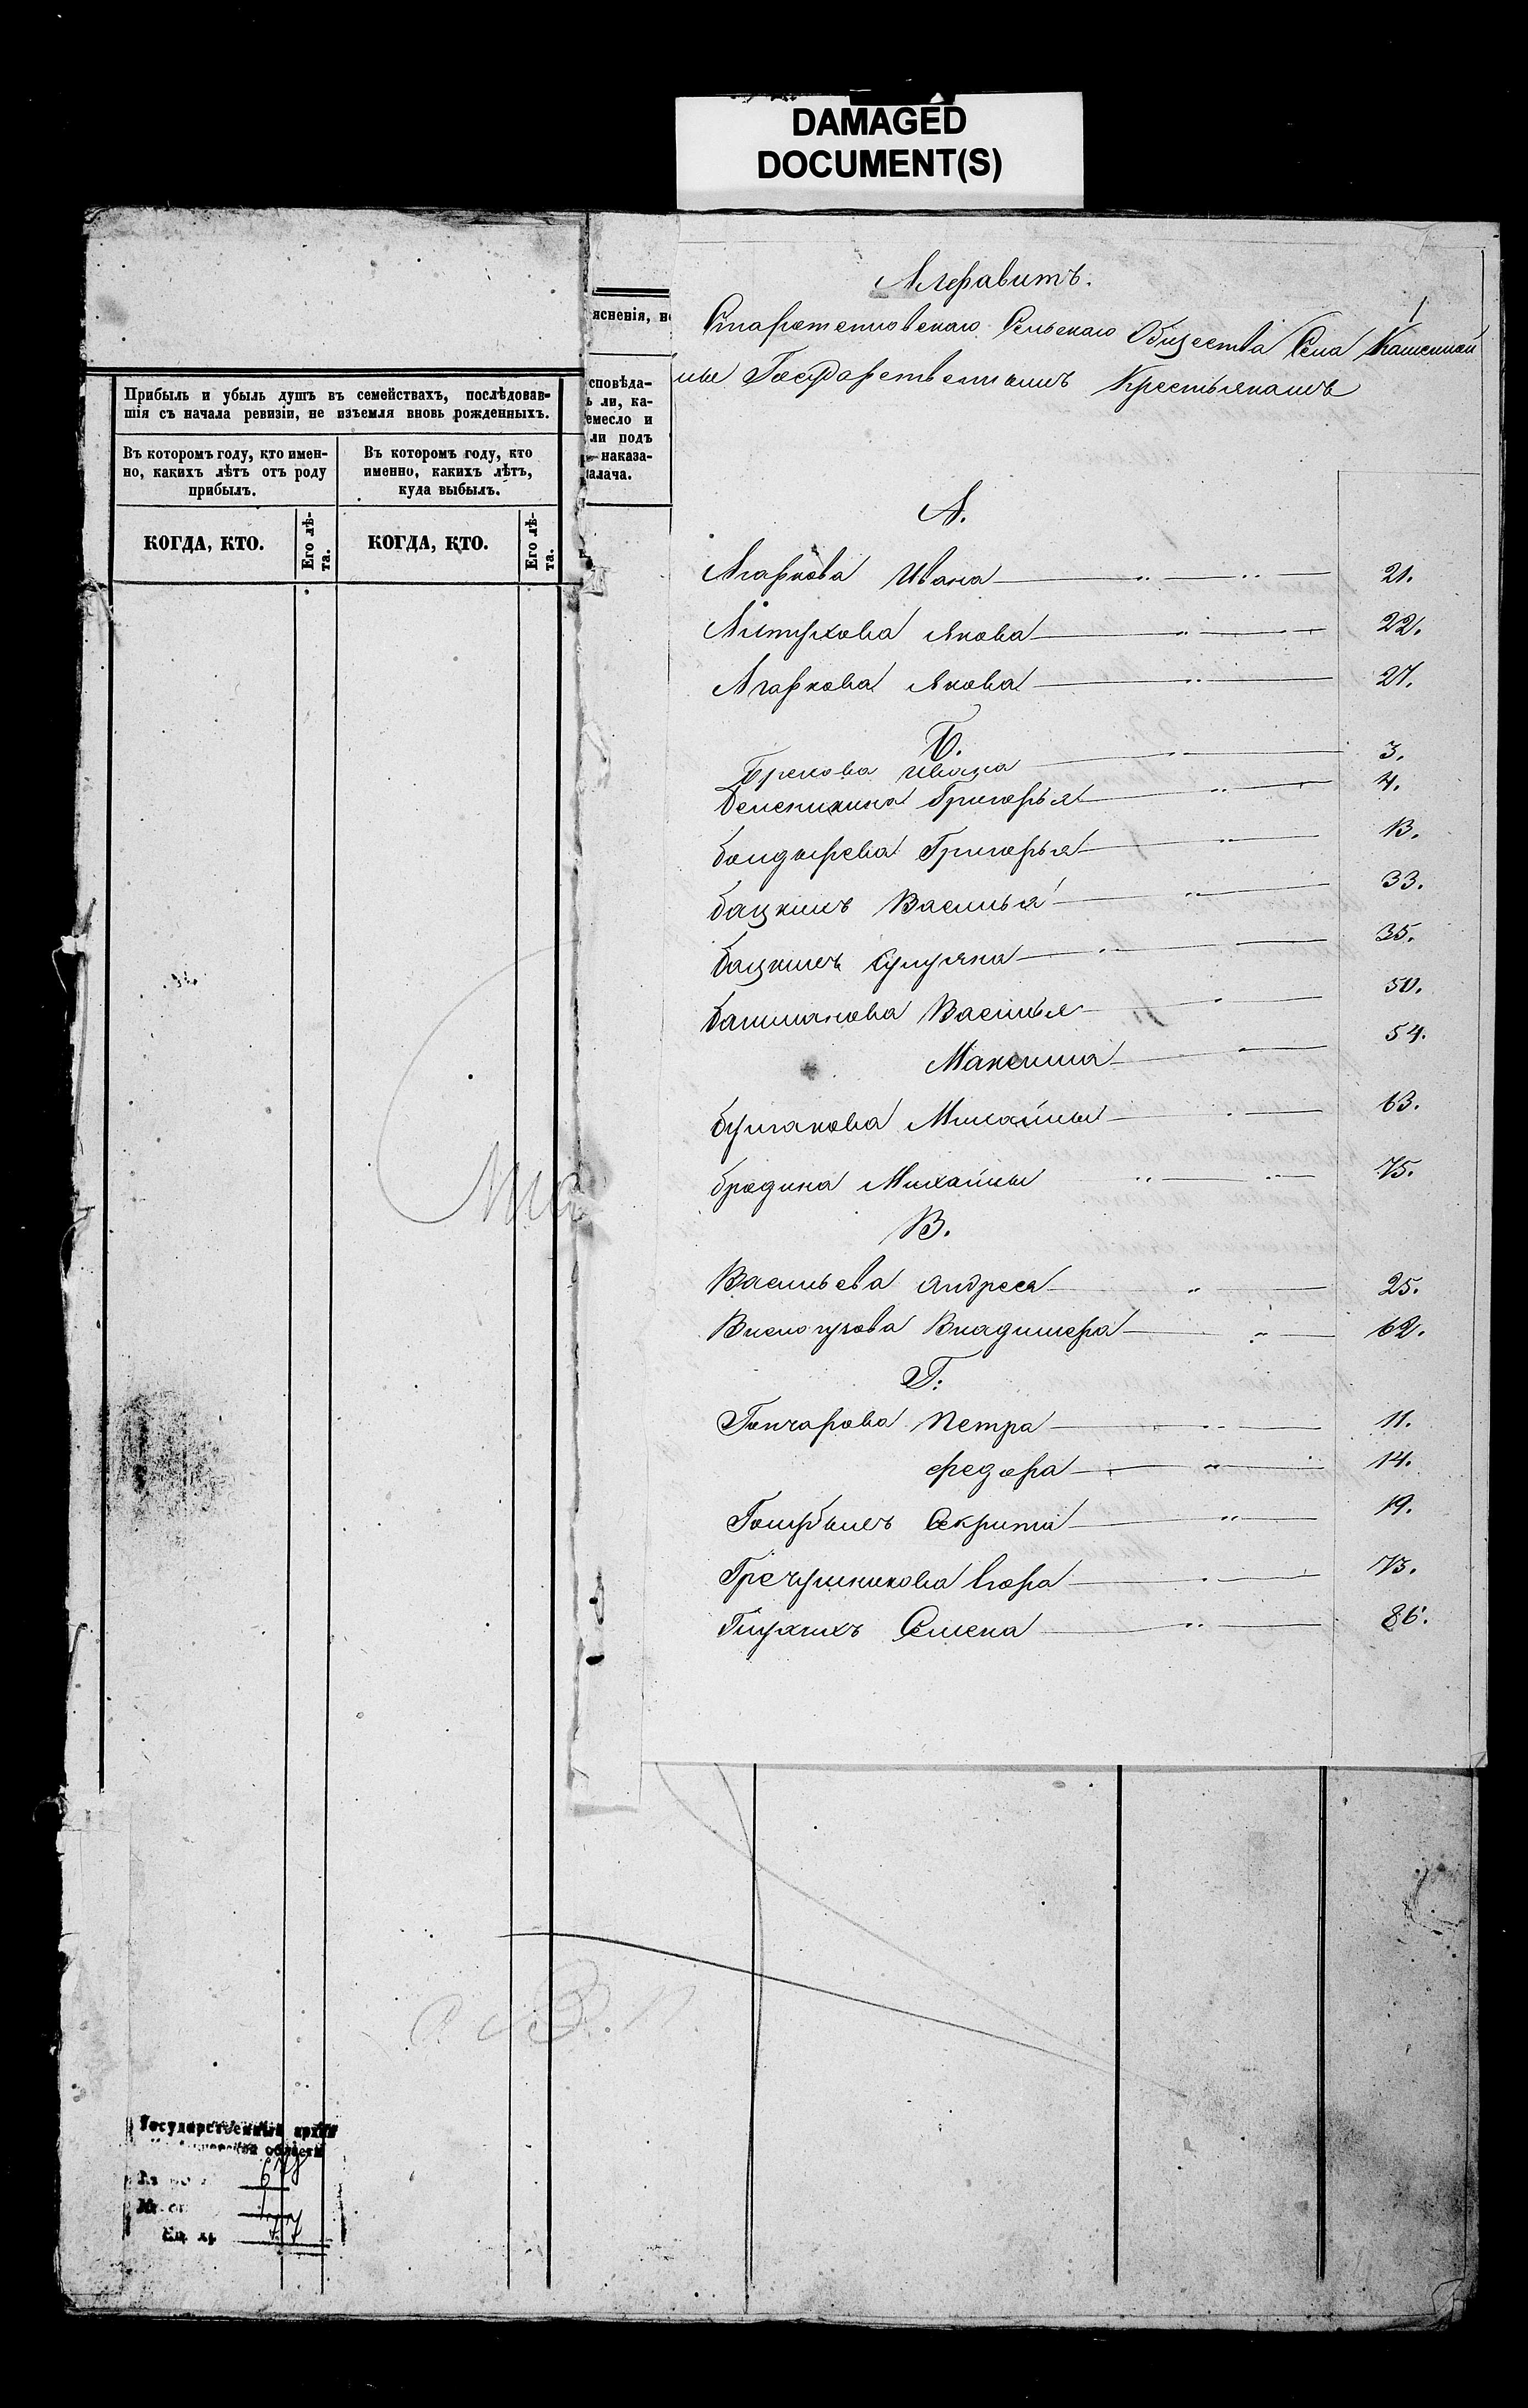 DAMAGED
DOCUMENT(S)
Прибыль и убыль душъ въ семействахъ, послѣдовав-
шія съ начала ревизіи, не изъемля вновь рожденныхъ.
Въ которомъ году, кто имен-
но, какихъ лѣтъ отъ роду
прибылъ.
Въ которомъ году, кто
именно, какихъ лѣтъ,
куда выбылъ.
КОГДА, КТО.
Его лѣ-
та.
КОГДА, КТО.
Его лѣ-
та.
ясненія, н
сповѣда-
ь ли, ка-
емесло и
ли подъ
наказа-
алача.
Алфавитъ.
1
Сельскаго Общества Села Каменной
Государственнымъ Крестьянамъ
А.
Агаркова Ивана 21.
Якова 22.
Агаркова Якова 27.
Б.
Ивана 3.
Григорья 4.
Болдырева Григорья 13.
Бацкихъ Василья 33.
Бацкихъ 35.
Башмакова Василья 50.
Максима 54.
Булгакова Михайлы 63.
Бредина Михайлы 75.
В.
Васильева Андрея 25.
Вислогузова Владимера 62.
Г.
Гончарова Петра 11.
Федора 14.
19.
Гречушникова Егора 73.
Глухихъ Семена 86.
Государственный архив
области